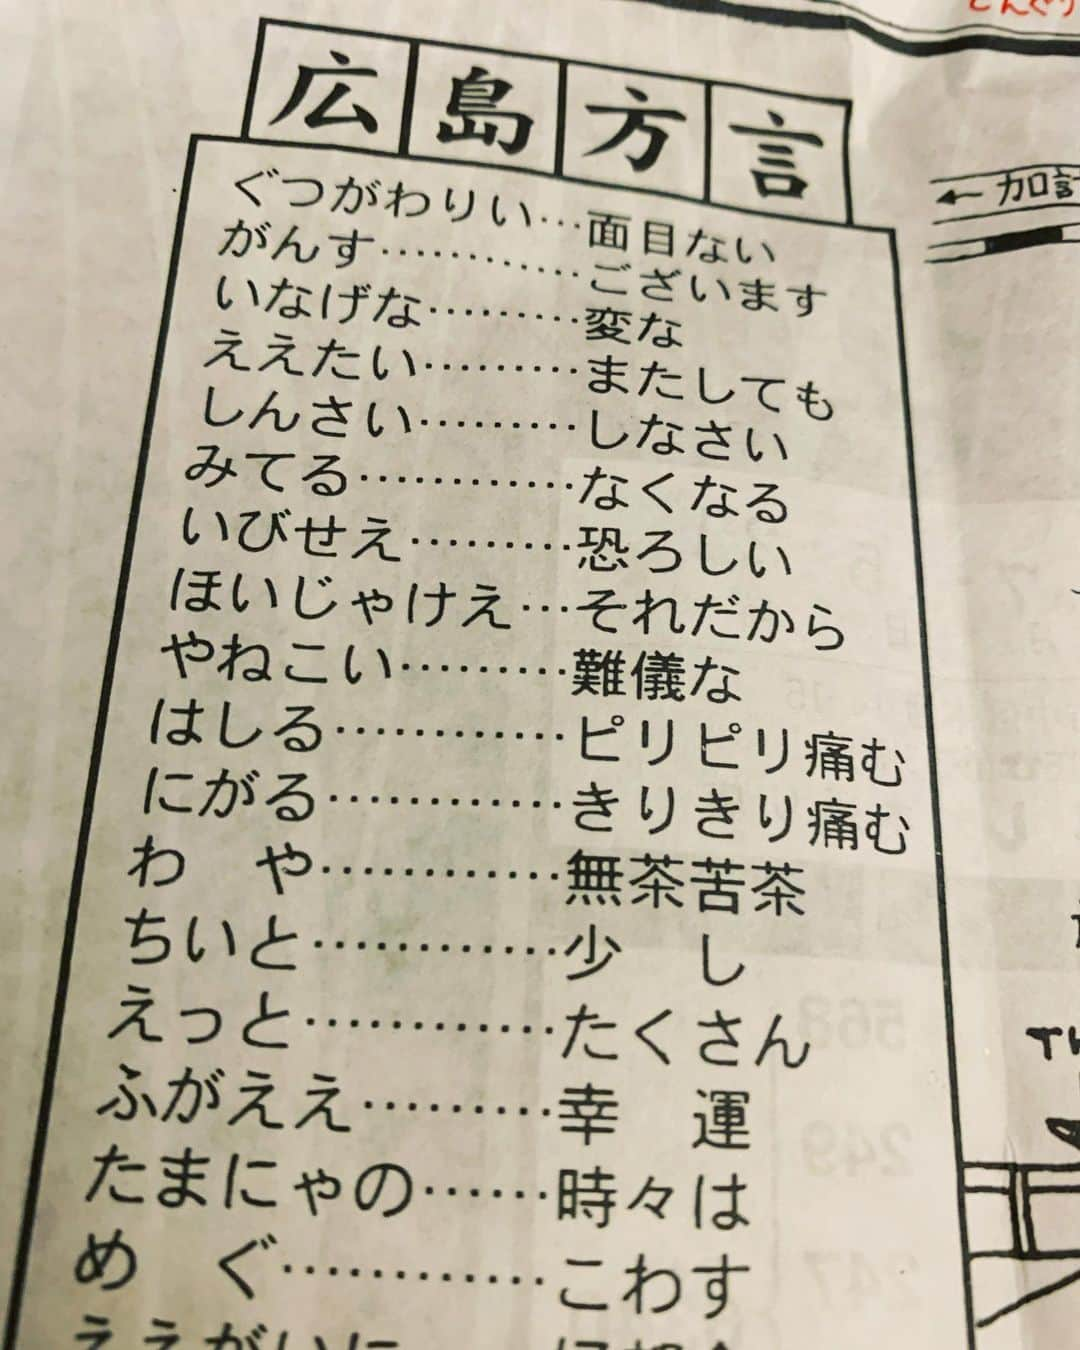 広島方言
ぐつがわりい…面目ない
がんす…………ございます
いなげな………変な
ええたい………またしても
しんさい………しなさい
みてる…………なくなる
いびせえ………恐ろしい
ほいじゃけえ…それだから
やねこい………難儀な
はしる…………ピリピリ痛む
にがる…………きりきり痛む
わ　や…………無茶苦茶
ちいと…………少　し
えっと…………たくさん
ふがええ………幸　運
たまにゃの……時々は
め　ぐ…………こわす
ええがいに
←加